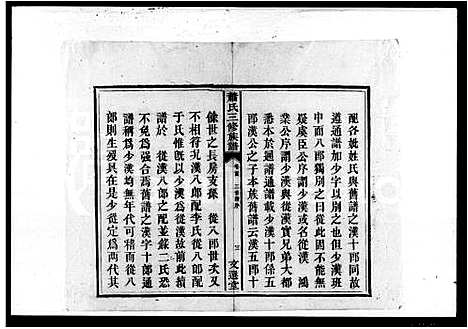 配各妣姓氏與舊譜之漢十郎同故
道通譜加少字以别之也但少漢班
中面八郎獨别之曰從因不能無
疑虞臣公序謂少漢或名從漢　鴻
業公序謂少漢與從漢實兄弟大都
悉本於通譜通譜載少漢十郎係五
郎漢公之子本族舊譜云漢五郎十
蕭氏三修族譜
卷首
三
文選堂
餘世之長房支孫　從八郎世次又
不相符况漢八郎配李氏從八郎配
于氏惟旣以少漢爲從漢故前此續
譜於　從漢八郎之配並錄二氏恐
不免爲强合焉舊譜之漢字十郎通
譜稱爲少漢均無年代可稽而從八
郎則生歿具在是少從定爲兩代其